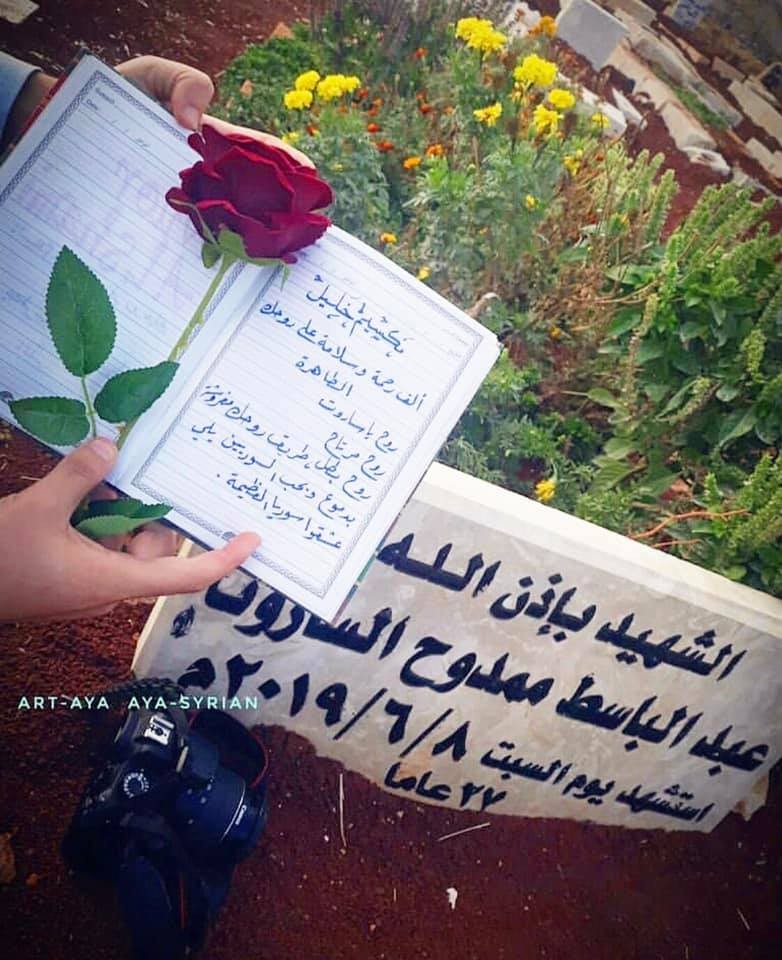 ألف رحمة وسلامة على روحك
الطاهرة
روح ياساروت
روح مرتاح
روح بطل طريق روحك مفروشة
بدموع وبحب السوريين يلي
عشقوا سوريا العظيمة.
الشهيد بإذن الله
عبد الباسط ممدوح الساروت
استشهد يوم السبت ٢٠١٩/٦/٨م
٢٧ عاما
ART-AYA AYA-SYRIAN